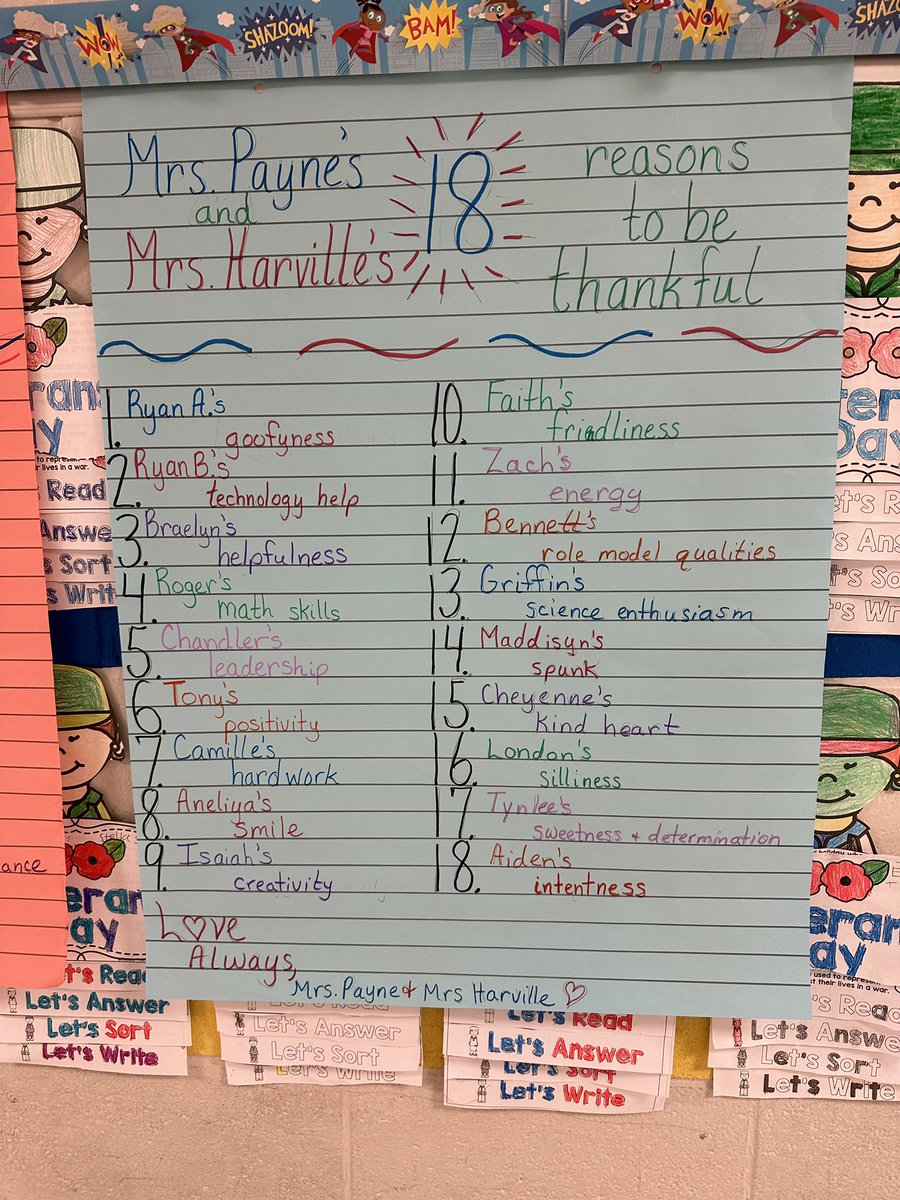 WOW
SHAZOOM!
BAM!
WOW
SHAZO
Mrs. Payne's
and
Mrs. Harville's
18
reasons
to be
thankful
1. Ryan A.'s
goofyness
2. Ryan B.'s
technology help
3. Braelyn's
helpfulness
4. Roger's
math skills
5. Chandler's
leadership
6. Tony's
positivity
7. Camille's
hardwork
8. Aneliya's
smile
9. Isaiah's
creativity
10. Faith's
friadliness
11. Zach's
energy
12. Bennett's
role model qualities
13. Griffin's
science enthusiasm
14. Maddisyn's
spunk
15. Cheyenne's
kind heart
16. London's
silliness
17. Tynlee's
sweetness + determination
18. Aiden's
intentness
Love
Always,
Mrs. Payne & Mrs Harville
ance
eran
ay
to represen
r lives in a war.
s Read
Answe
s Sort
s Writ
Stella
eran
ay
t's Read
Let's Answer
Let's Sort
Let's Write
Let's Answer
Let's Sort
Let's Write
Let's Read
Let's Answer
Let's Sort
Let's Write
eran
Day
et's R
t's Ans
t's So
t's Wr
eran
ay
used to represen
their lives in a war.
s Read
Let's Answe
Let's Sort
Let's Write